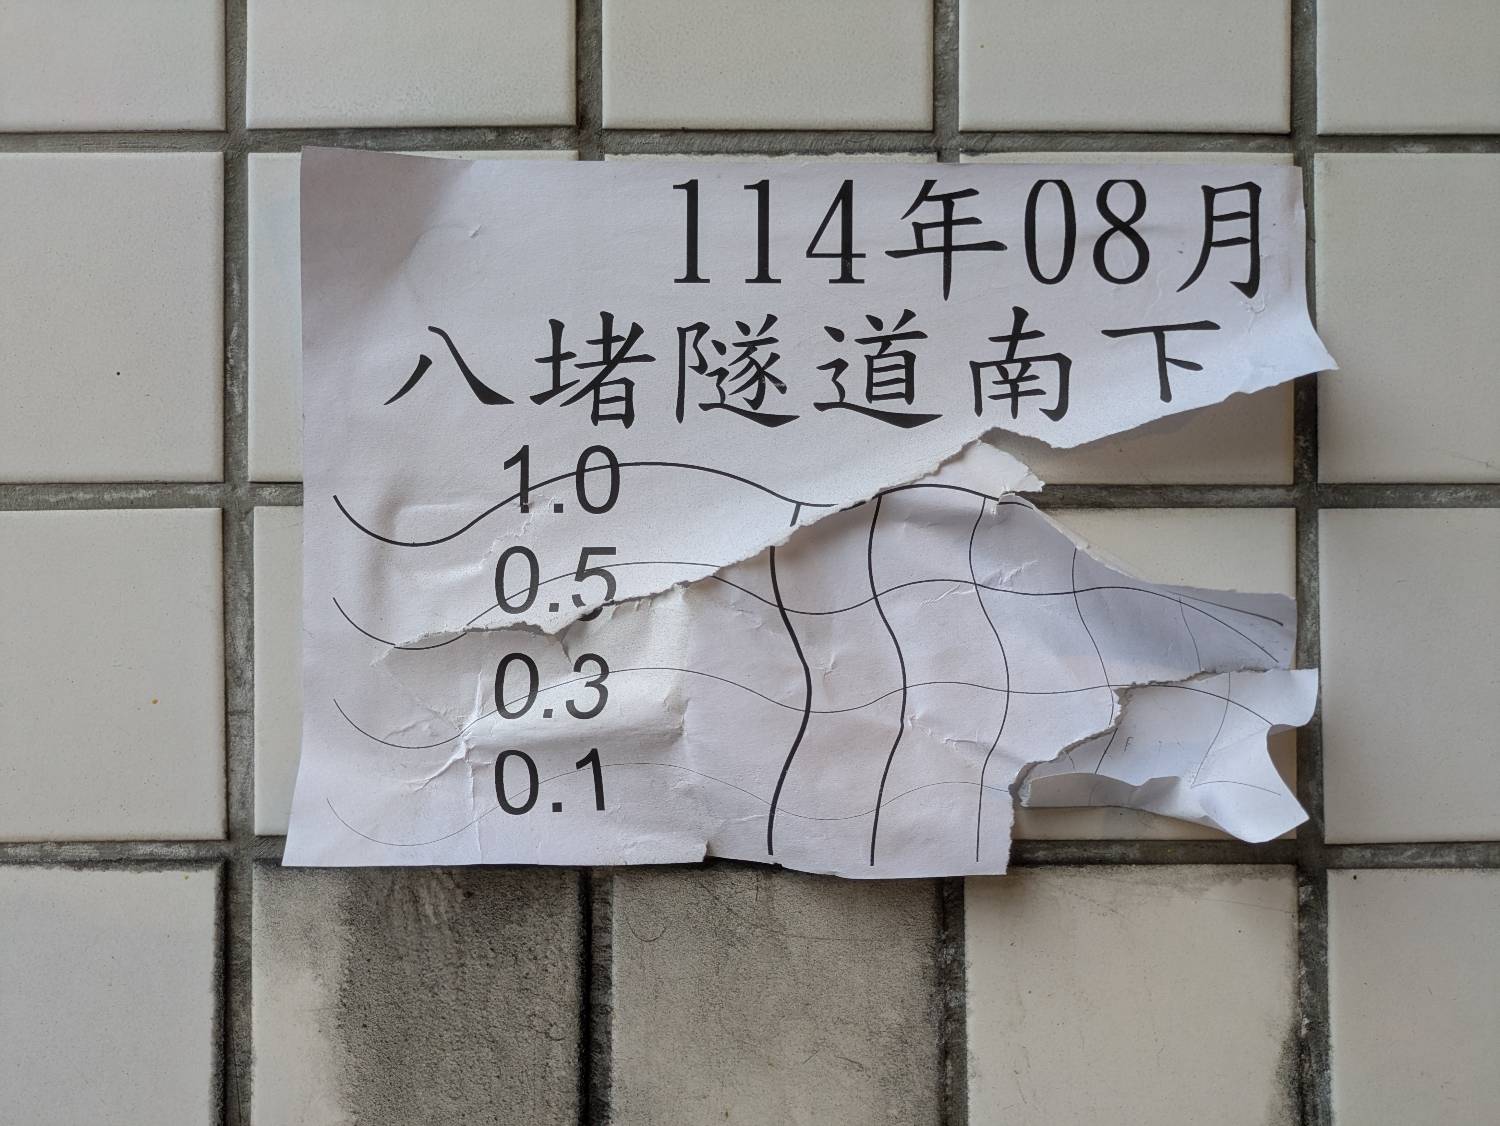 114年08月
八堵隧道南下
1.0
0.5
0.3
0.1